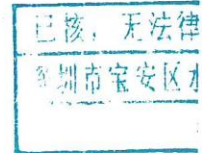 已核，无法律
圳市宝安区水